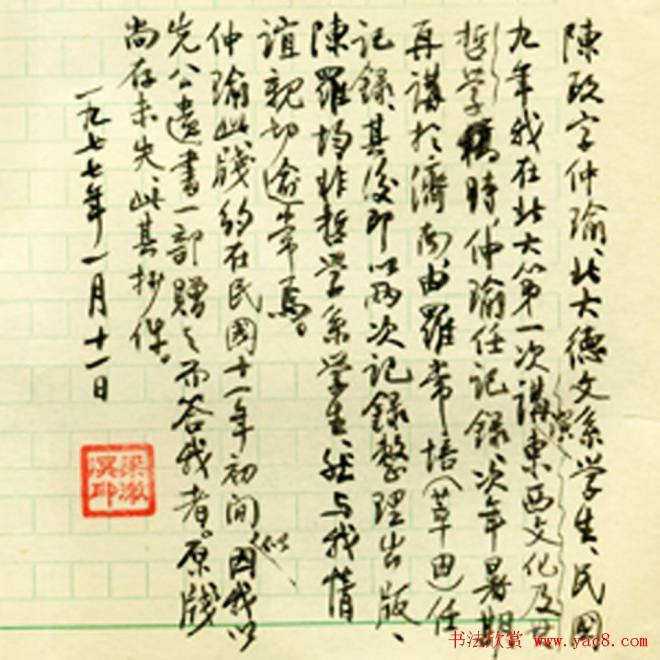 陳政字仲瑜、北大德文系學生、民國
九年我在北大第一次講演東西文化及其
哲学稿時，仲瑜任記録、次年暑期
再講於濟南，由羅常培（莘田）任
記録、其後即以兩次記録整理出版、
陳羅均非哲学系学生、然与我情
誼親切逾常焉。
仲瑜此牋約在民國十一年初间，似因我以
先公遺書一部贈之而答我者。原牋
尚存未失、此其抄件。
一九七七年一月十一日
梁漱
溟印
书法欣赏 www.yac8.com